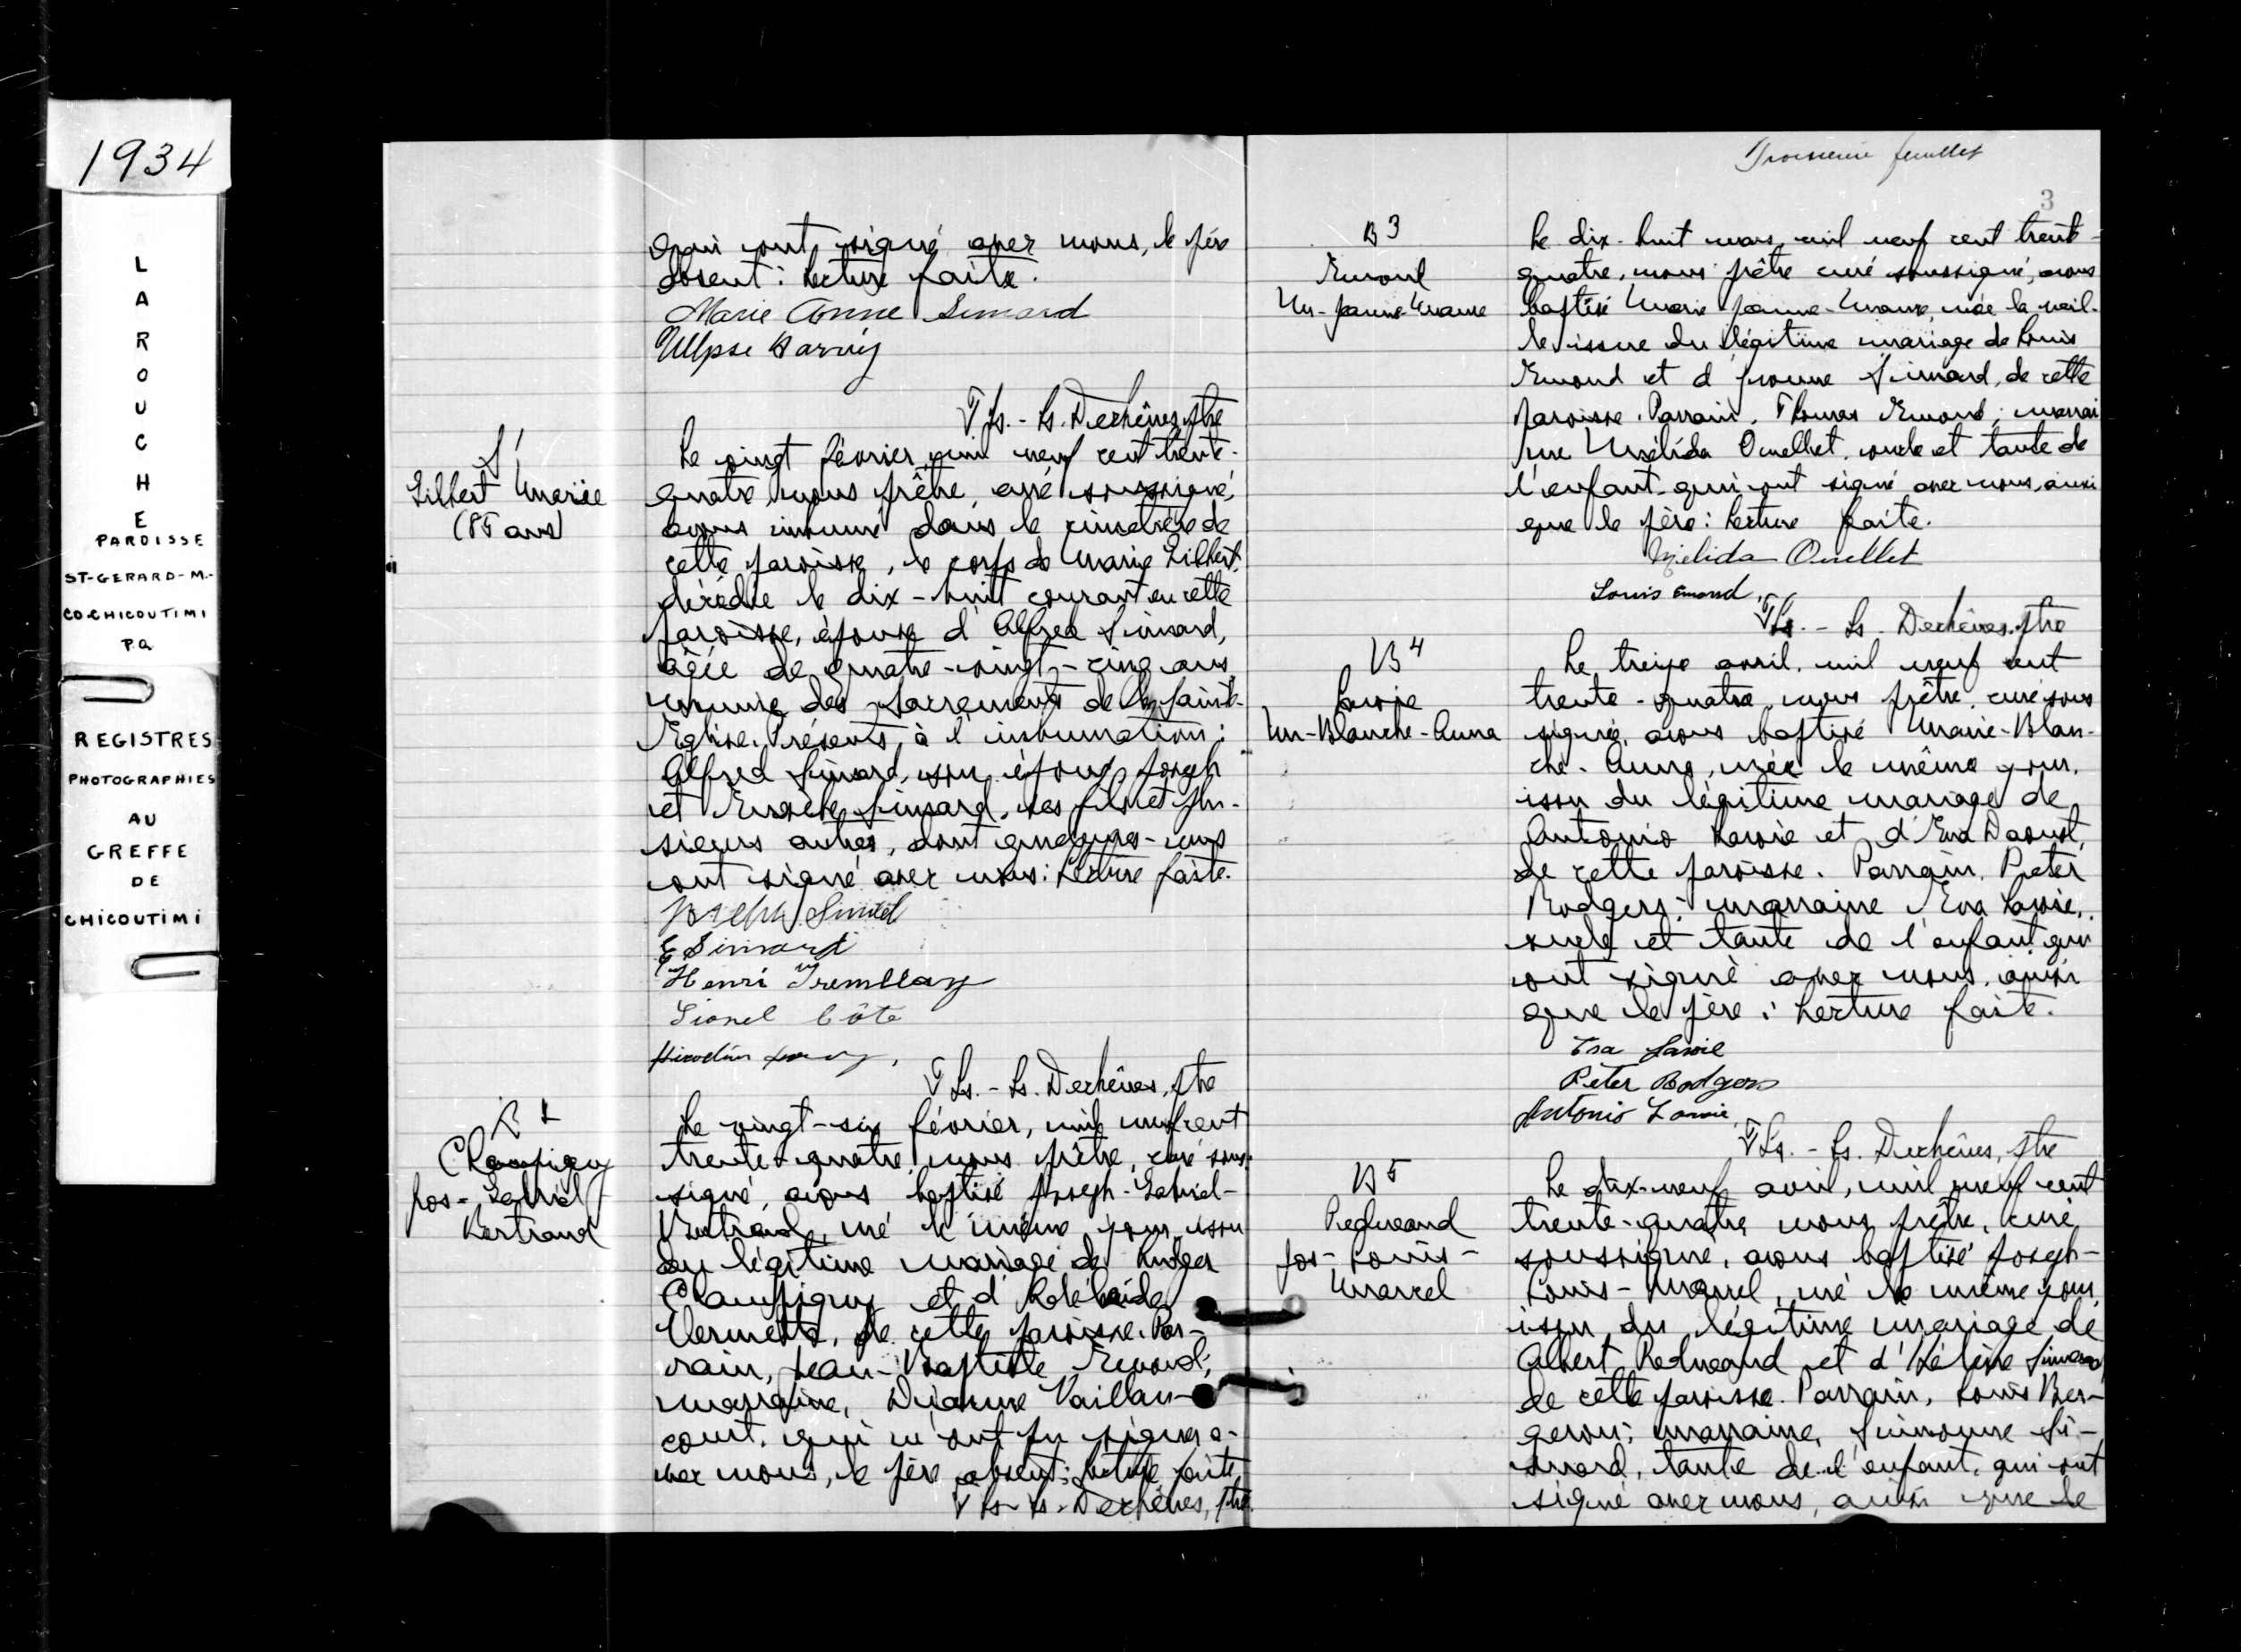 1934
LAROUCHE
PAROISSE
ST-GERARD-M.-
CO-CHICOUTIMI
P.Q.
REGISTRES
PHOTOGRAPHIES
AU
GREFFE
DE
CHICOUTIMI
qui ont signé avec nous, le père
absent: Lecture faite.
Marie Anne Simard
Ulysse Harvey
Ls.-Ls. Deschênes, ptre
S1
Gilbert Marie
(85 ans)
Le vingt février, mil neuf cent trente-
quatre, nous prêtre, curé soussigné,
avons inhumé dans le cimetière de
cette paroisse, le corps de Marie Gilbert,
décédée le dix-huit courant en cette
paroisse, épouse d'Alfred Simard,
âgée de quatre-vingt-cinq ans,
munie des sacrements de la Sainte-
Eglise. Présents, à l'inhumation:
Alfred Simard, son époux, Joseph
et Simard, ses fils et plu-
sieurs autres, dont quelques-uns
ont signé avec nous: Lecture faite.
Joseph Simard
E Simard
Henri Tremblay
Lionel Côté
Ls.-Ls. Deschênes, ptre
B 2
Champigny
Jos-Gabriel
Bertrand
Le vingt-six février, mil neuf cent
trente-quatre, nous prêtre, curé sous-
signé, avons baptisé Joseph-Gabriel-
Bertrand, né le même jour, issu
du légitime mariage de
Champigny et d'Adélaïde
Vermette, de cette paroisse. Par-
rain, Jean-Baptiste Emond;
marraine, Vaillan-
court, qui n'ont pu signer a-
vec nous, le père absent: Lecture faite
Ls-Ls. Deschênes, ptre.
Troisième feuillet
3
B3
Emond
M-Jeanne-Mance
Le dix-huit mars, mil neuf cent trente-
quatre, nous prêtre curé soussigné, avons
baptisé Marie Jeanne-Mance, née la veil-
le issue du légitime mariage de Louis
Emond et d' Simard, de cette
paroisse. Parrain, Thomas Emond; marrai
ne Mélida Ouellet, oncle et tante de
l'enfant qui ont signé avec nous, ainsi
que le père: Lecture faite.
Mélida Ouellet
Louis Emond
Ls.-Ls. Deschênes, ptre
B4
Lavoie
M-Blanche-Anna
Le treize avril, mil neuf cent
trente-quatre, nous prêtre, curé sous
signé, avons baptisé Marie-Blan-
che-Anna, née le même jour,
issu du légitime mariage de
Antonio Lavoie et d'Eva Daoust,
de cette paroisse. Parrain, Peter
Rodgers; marraine Eva Lavoie,
oncle et tante de l'enfant qui
ont signé avec nous, ainsi
que le père: Lecture faite.
Eva Lavoie
Peter Rodgers
Antonio Lavoie
Ls.-Ls. Deschênes, ptre
B5
Jos-Louis-
Marcel
Le dix-neuf avril, mil neuf cent
trente-quatre, nous prêtre, curé
soussigné, avons baptisé Joseph-
Louis-Marcel, né le même jour,
issu du légitime mariage de
Albert et d' Simard,
de cette paroisse. Parrain, Louis Ber-
geron; marraine, Simonne Si-
mard, tante de l'enfant, qui ont
signé avec nous, ainsi que le